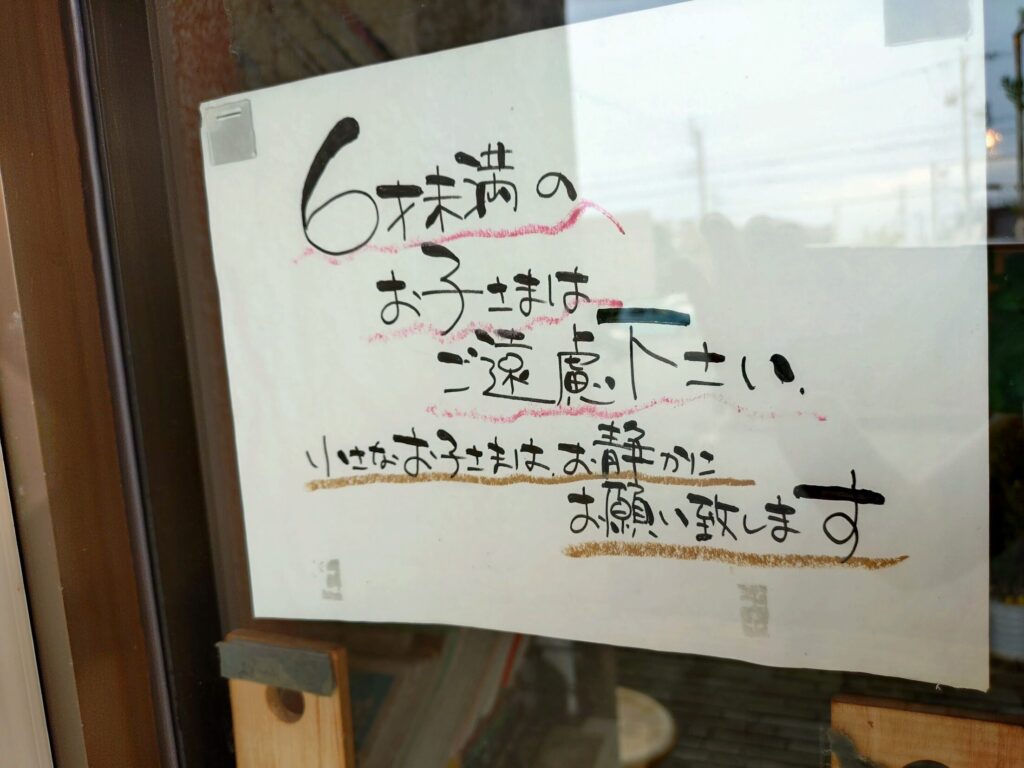 6才未満の
お子さまは
ご遠慮下さい.
小さなお子さまは、お静かに
お願い致します